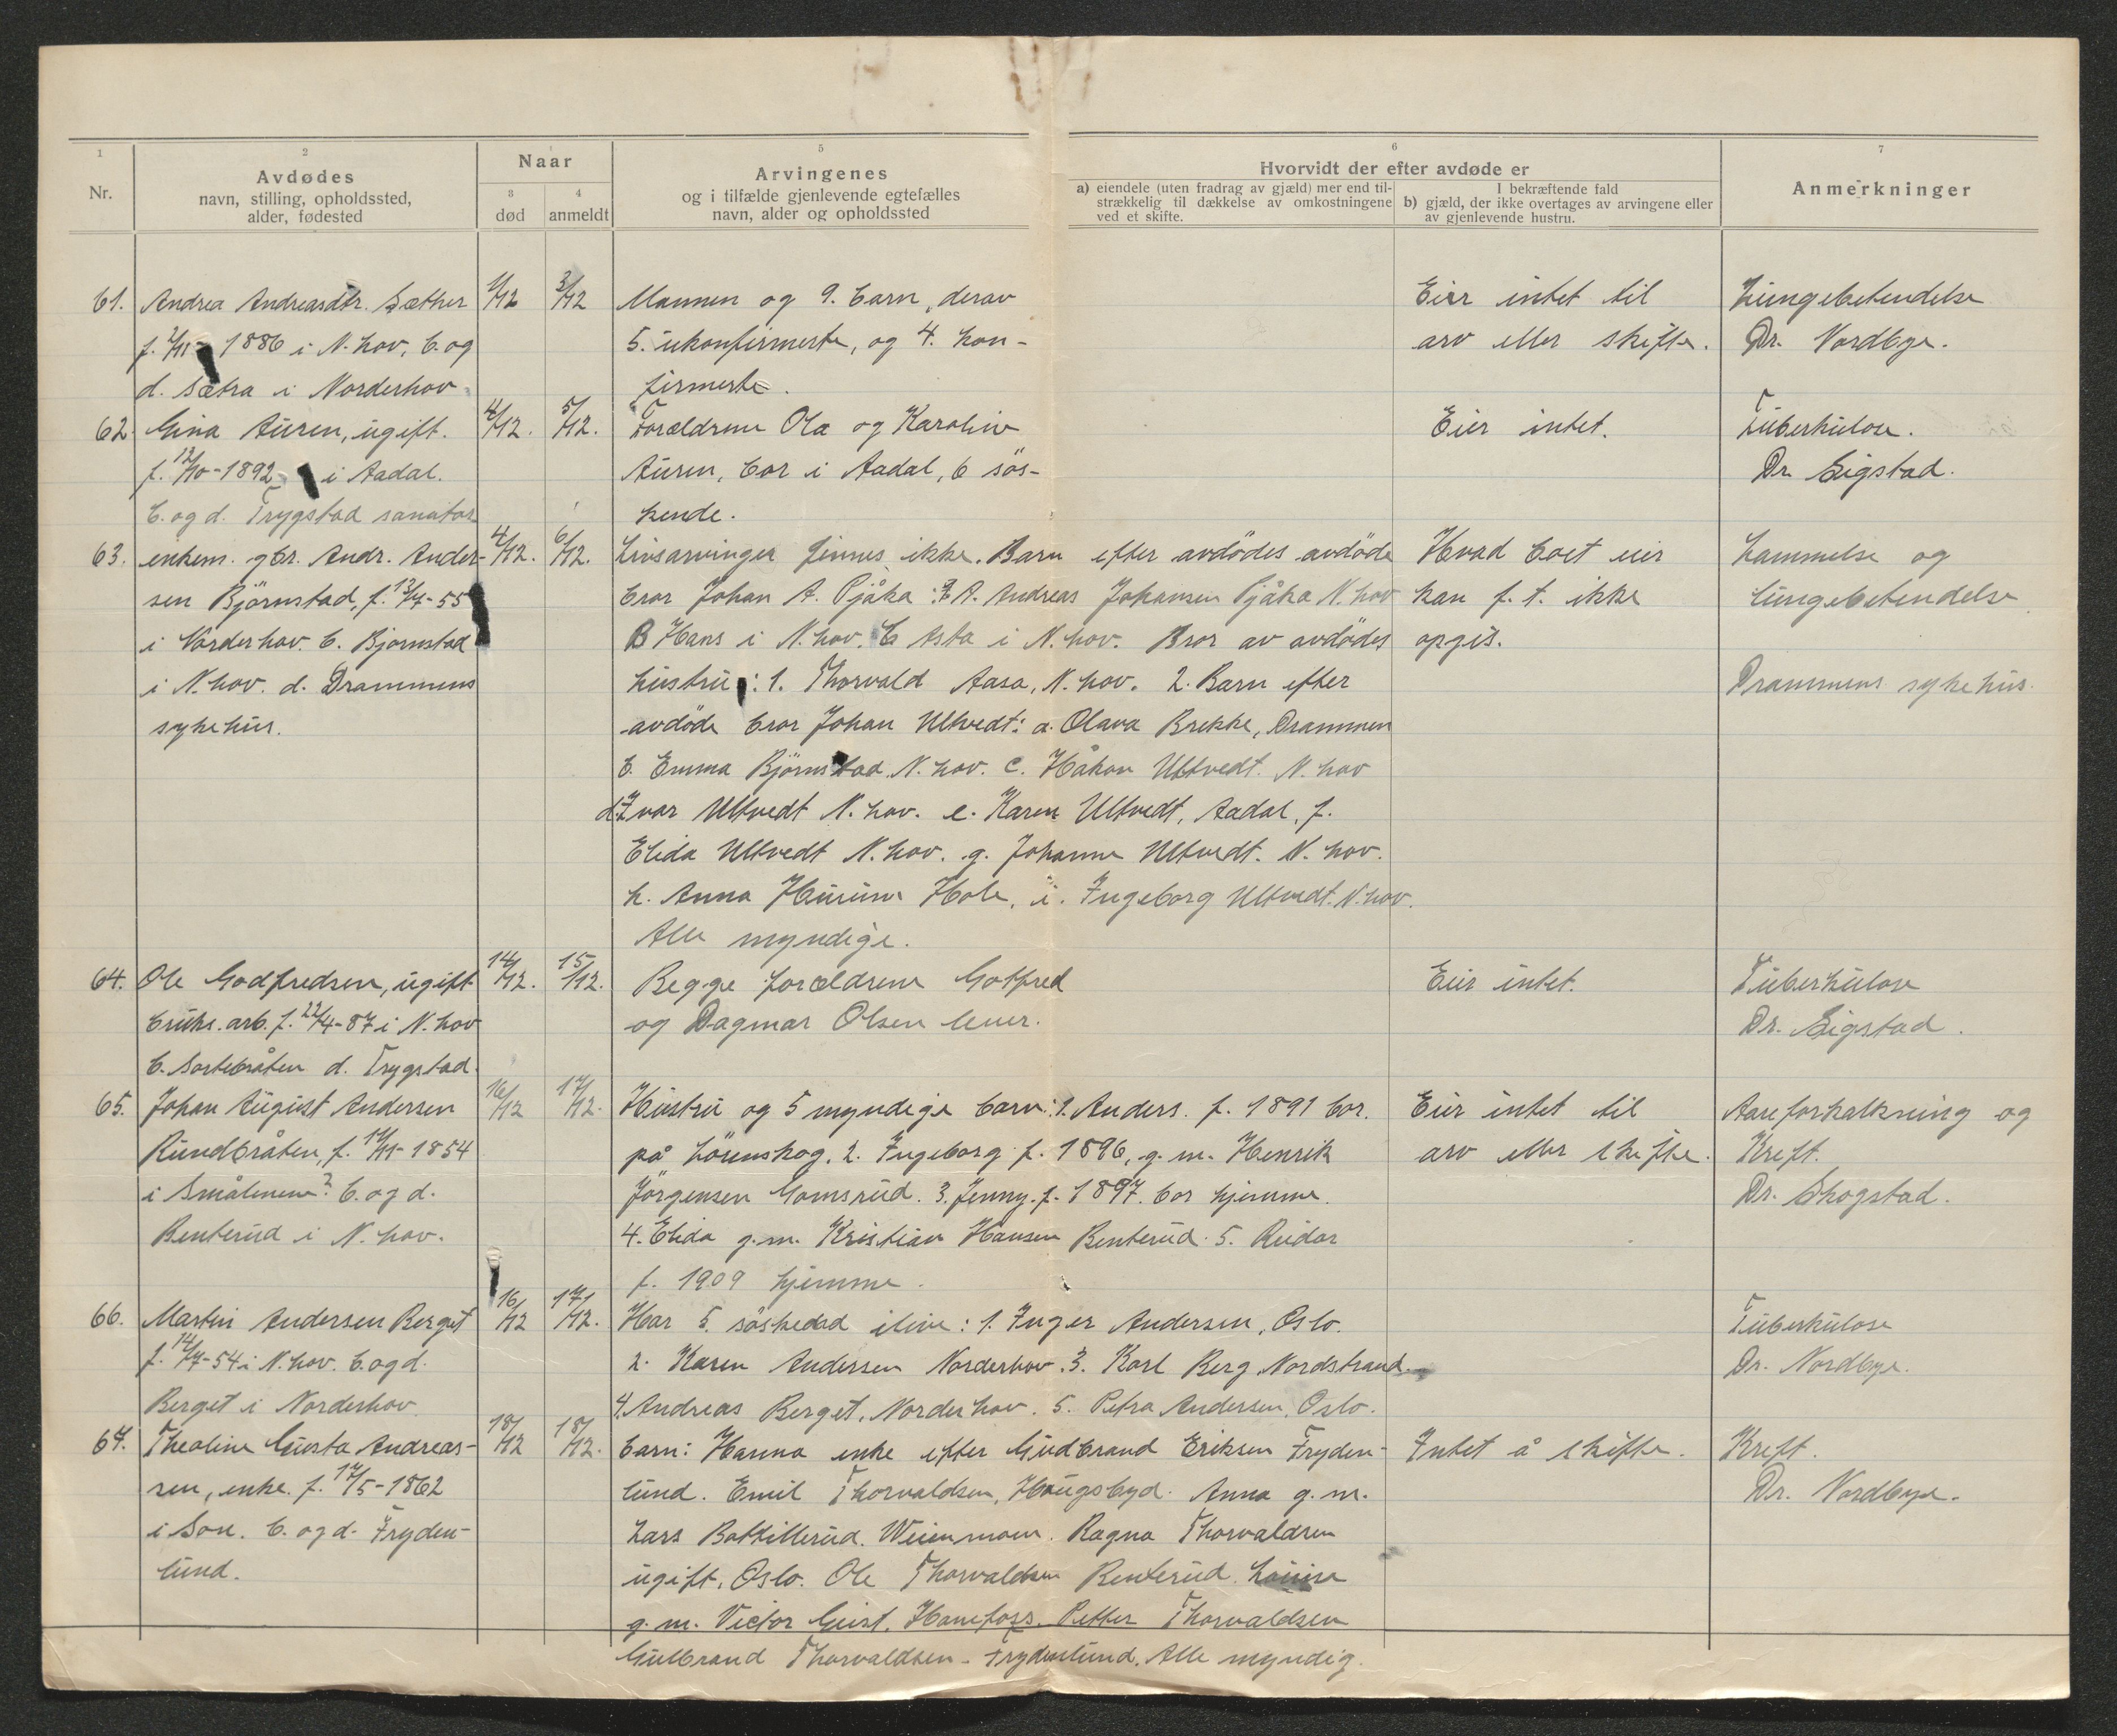 1
2
3
4
5
6
7
Nr.
Avdødes
navn, stilling, opholdssted,
alder, fødested
Naar
død
anmeldt
Arvingenes
og i tilfælde gjenlevende egtefælles
navn, alder og opholdssted
Hvorvidt der efter avdøde er
a) eiendele (uten fradrag av gjæld) mer end til-
strækkelig til dækkelse av omkostningene
ved et skifte.
I bekræftende fald
b) gjæld, der ikke overtages av arvingene eller
av gjenlevende hustru.
Anmerkninger
61. Andrea Andreasdtr. Sæther 1/12 3/12 Mannen og 9. barn, derav Eier intet til Lungebetendelse
f. 7/11- 1886 i N. hov, b. og 5. ukonfirmerte, og 4. kon- arv eller skifte. Dr. Nordbye.
d. Sætra i Norderhov firmerte.
62. Gina Auren, ugift. 4/12. 5/12. Foreldrene Ola og Karoline Eier intet. Tuberkulose.
f. 13/10-1892 i Aadal. Auren, bor i Aadal, 6 søs- Dr. Sigstad.
b. og d. Trygstad sanator kende.
63. enkem. gbr. Andr. Ander- 4/12. 6/12. Livsarvinger finnes ikke. Barn efter avdødes avdøde Hvad boet eier Lammelse og
sen Björnstad, f. 13/4-55 bror Johan A. Pjåka: A. Andreas Johansen Pjåka N. hov kan f. t. ikke lungebetendelse
i Norderhov. b. Bjornstad B Hans i N. hov. C Asta i N. hov. Bror av avdødes opgis.
i N. hov. d. Drammens hustru: 1. Thorvald Aasa, N. hov. 2. Barn efter Drammens sykehus.
sykehus. avdøde bror Johan Ultvedt: a. Olava Brekke, Drammen
b. Emma Björnstad N. hov. c. Håkon Ultvedt. N. hov
d. Ivar Ultvedt N. hov. e. Karen Ultvedt, Aadal, f.
Elida Ultvedt N. hov. g. Johanne Ultvedt. N. hov.
h. Anna Hurum Hole, i. Ingeborg Ultvedt. N. hov.
Alle myndige.
64. Ole Godfredsen, ugift 14/12. 15/12. Begge foreldrene Gotfred Eier intet. Tuberkulose
bruks. arb. f. 22/4-87 i N. hov og Dagmar Olsen lever. Dr. Sigstad.
b. Sortebråten d. Trygstad.
65. Johan August Andersen 16/12 17/12. Hustru og 5 myndige barn: 1. Anders. f. 1891 bor. Eier intet til Aareforkalkning og
Rundbråten, f. 14/11-1854 på Lörenskog. 2. Ingeborg f. 1896, g. m. Henrik arv eller skifte. Kreft.
i Smålenene? b. og d. Jörgensen Gomsrud. 3. Jenny. f. 1897. bor hjemme. Dr. Skogstad.
Benterud i N. hov. 4. Elida g. m. Kristian Hansen Benterud. 5. Reidar
f. 1909 hjemme.
66. Martin Andersen Berget 16/12 17/12. Har 5. søskend ilive: 1. Inger Andersen, Oslo. Tuberkulose
f. 14/7-54 i N. hov. b. og d. 2. Karen Andersen Norderhov. 3. Karl Berg Nordstrand. Dr. Nordbye.
Berget i Norderhov. 4. Andreas Berget, Norderhov. 5. Petra Andersen, Oslo.
67. Theoline Gusta Andreas- 18/12 18/12. barn: Hanna enke efter Gudbrand Eriksen Fryden- Intet å skifte. Kreft.
sen, enke. f. 17/5-1862 lund. Emil Thorvaldsen, Haugsbygd. Anna g. m. Dr. Nordbye.
i Son. b. og d. Fryden- Lars Bottillerud. Weienmoen. Ragna Thorvaldsen
lund. ugift, Oslo. Ole Thorvaldsen Benterud. Louise
g. m. Victor Geist. Hønefoss. Petter Thorvaldsen
Gulbrand Thorvaldsen - Frydenlund. Alle myndig.